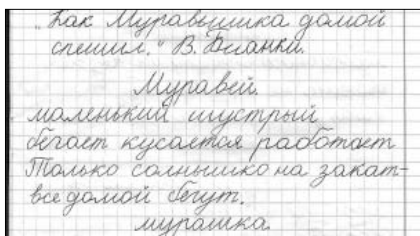 „Как Муравьишка домой
спешил." В. Бианки.
Муравей.
маленький шустрый
бегает кусается работает
Только солнышко на закат-
все домой бегут.
мурашка.